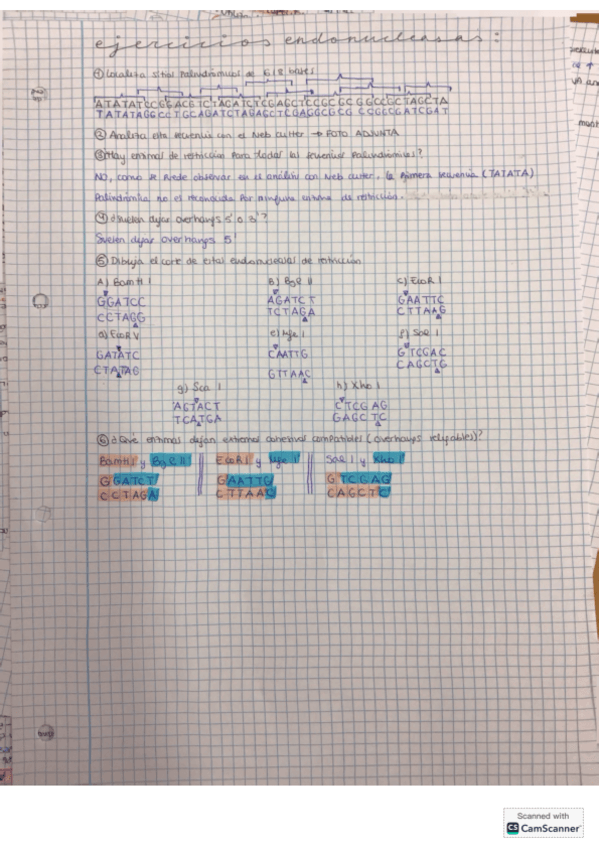 ejercicios endonucleasas:
① Localiza sitios Palindrómicos de 6/8 bases
ATATATCCGGACGTCTAGATCTCGAGCTCCGCGCGGCCGCTAGCTA
TATATAGGCCTGCAGATCTAGAGCTCGAGGCGCGCCGGCGATCGAT
② Analiza esta secuencia con el Web cutter → FOTO ADJUNTA
③ ¿Hay enzimas de restricción Para todas las secuencias Palindrómicas?
NO, como se Puede observar en el análisis con Web cutter, la Primera secuencia (TATATA)
Palindrómica no es reconocida Por ninguna enzima de restricción.
④ ¿Suelen dejar overhangs 5' o 3'?
Suelen dejar overhangs 5'
⑤ Dibuja el corte de estas endonucleasas de restricción
A) BamH I B) Bgl II C) EcoR I
GGATCC AGATCT GAATTC
CCTAGG TCTAGA CTTAAG
d) EcoR V e) Mfe I f) Sal I
GATATC CAATTG GTCGAC
CTATAG GTTAAC CAGCTG
g) Sca I h) Xho I
AGTACT CTCGAG
TCATGA GAGCTC
⑥ ¿Qué enzimas dejan extremos cohesivos compatibles (overhangs religables)?
BamH I y Bgl II EcoR I y Mfe I Sal I y Xho I
GGATCT GAATTG GTCGAG
CCTAGA CTTAAC CAGCTC
Scanned with
CS CamScanner